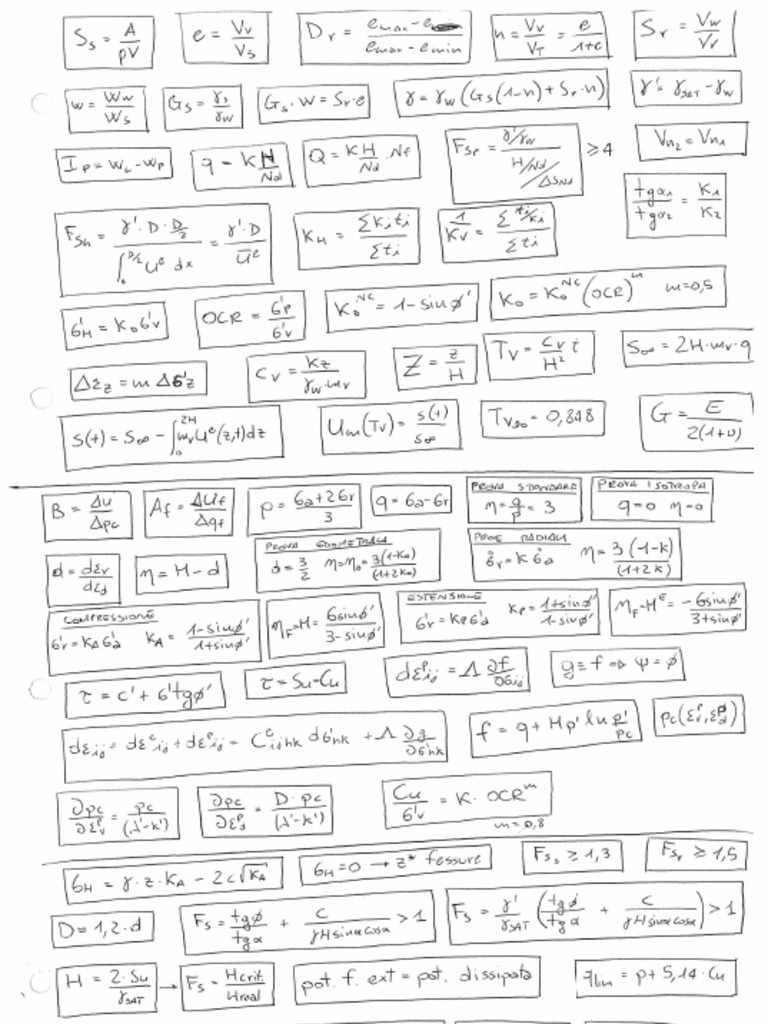 S_s = A/ρV   e = V_v/V_s   D_r = (e_max - e)/(e_max - e_min)   n = V_v/V_T = e/(1+e)   S_r = V_w/V_v
w = W_w/W_s   G_s = γ_s/γ_w   G_s · W = S_r · e   γ = γ_w (G_s(1-n) + S_r · n)   γ' = γ_SAT - γ_w
I_P = W_L - W_P   q = K H/Nd   Q = K H/Nd · Nf   F_SP = (γ'/γ_w)/(H/Nd/ΔS_Nd) ≥ 4   V_n2 = V_n1
F_Su = (γ' · D · D/2)/(∫_0^{D/2} U^e dx) = γ' · D/U̅^e   K_H = Σ K_i t_i/Σ t_i   1/K_V = Σ t_i/K_i/Σ t_i   tgα_1/tgα_2 = K_1/K_2
σ'_H = K_0 σ'_V   OCR = σ'_P/σ'_V   K_0^NC = 1 - sinφ'   K_0 = K_0^NC (OCR)^m   m = 0,5
Δε_z = m Δσ'_z   C_V = K_z/γ_w · m_v   Z = z/H   T_V = C_V t/H²   S_∞ = 2H · m_v · q
S(t) = S_∞ - ∫_0^{2H} m_v U^e(z,t)dz   U_m(T_V) = s(t)/s_∞   T_V90 = 0,848   G = E/2(1+υ)
B = Δu/Δp_c   A_f = ΔU_f/Δq_f   p = (σ_a + 2σ_r)/3   q = σ_a - σ_r   PROVA STANDARD η = q/p = 3   PROVA ISOTROPA q = 0 η = 0
d = dε_v/dε_d   η = M - d   PROVA EDOMETRICA d = 3/2 η = η_0 = 3(1-K_0)/(1+2K_0)   PROVE RADIALI σ̇_r = K σ̇_a η = 3(1-K)/(1+2K)
COMPRESSIONE σ'_r = K_A σ'_a K_A = (1 - sinφ')/(1 + sinφ')   η_F = M = 6 sinφ'/(3 - sinφ')   ESTENSIONE σ'_r = K_P σ'_a K_P = (1 + sinφ')/(1 - sinφ')   η_F = M^E = -6 sinφ'/(3 + sinφ')
τ = c' + σ' tgφ'   τ = S_u = C_u   dε^p_ij = Λ ∂f/∂σ_ij   g ≡ f ⇒ ψ = φ
dε_ij = dε^e_ij + dε^p_ij = C^e_ijhk dσ'_hk + Λ ∂g/∂σ'_hk   f = q + M p' ln p'/p_c   p_c(ε^p_v, ε^p_d)
∂p_c/∂ε^p_v = p_c/(λ' - k')   ∂p_c/∂ε^p_d = D · p_c/(λ' - k')   C_u/σ'_V = K · OCR^m
m = 0,8
σ_H = γ · z · K_A - 2c√K_A   σ_H = 0 → z* fessure   F_Ss ≥ 1,3   F_Sr ≥ 1,5
D = 1,2 · d   F_S = tgφ/tgα + c/γH sinα cosα > 1   F_S = γ'/γ_SAT (tgφ/tgα + c/γH sinα cosα) > 1
H = 2 · S_u/γ_SAT → F_S = H_crit./H_real   pot. f. ext = pot. dissipata   q_lim = p + 5,14 · C_u